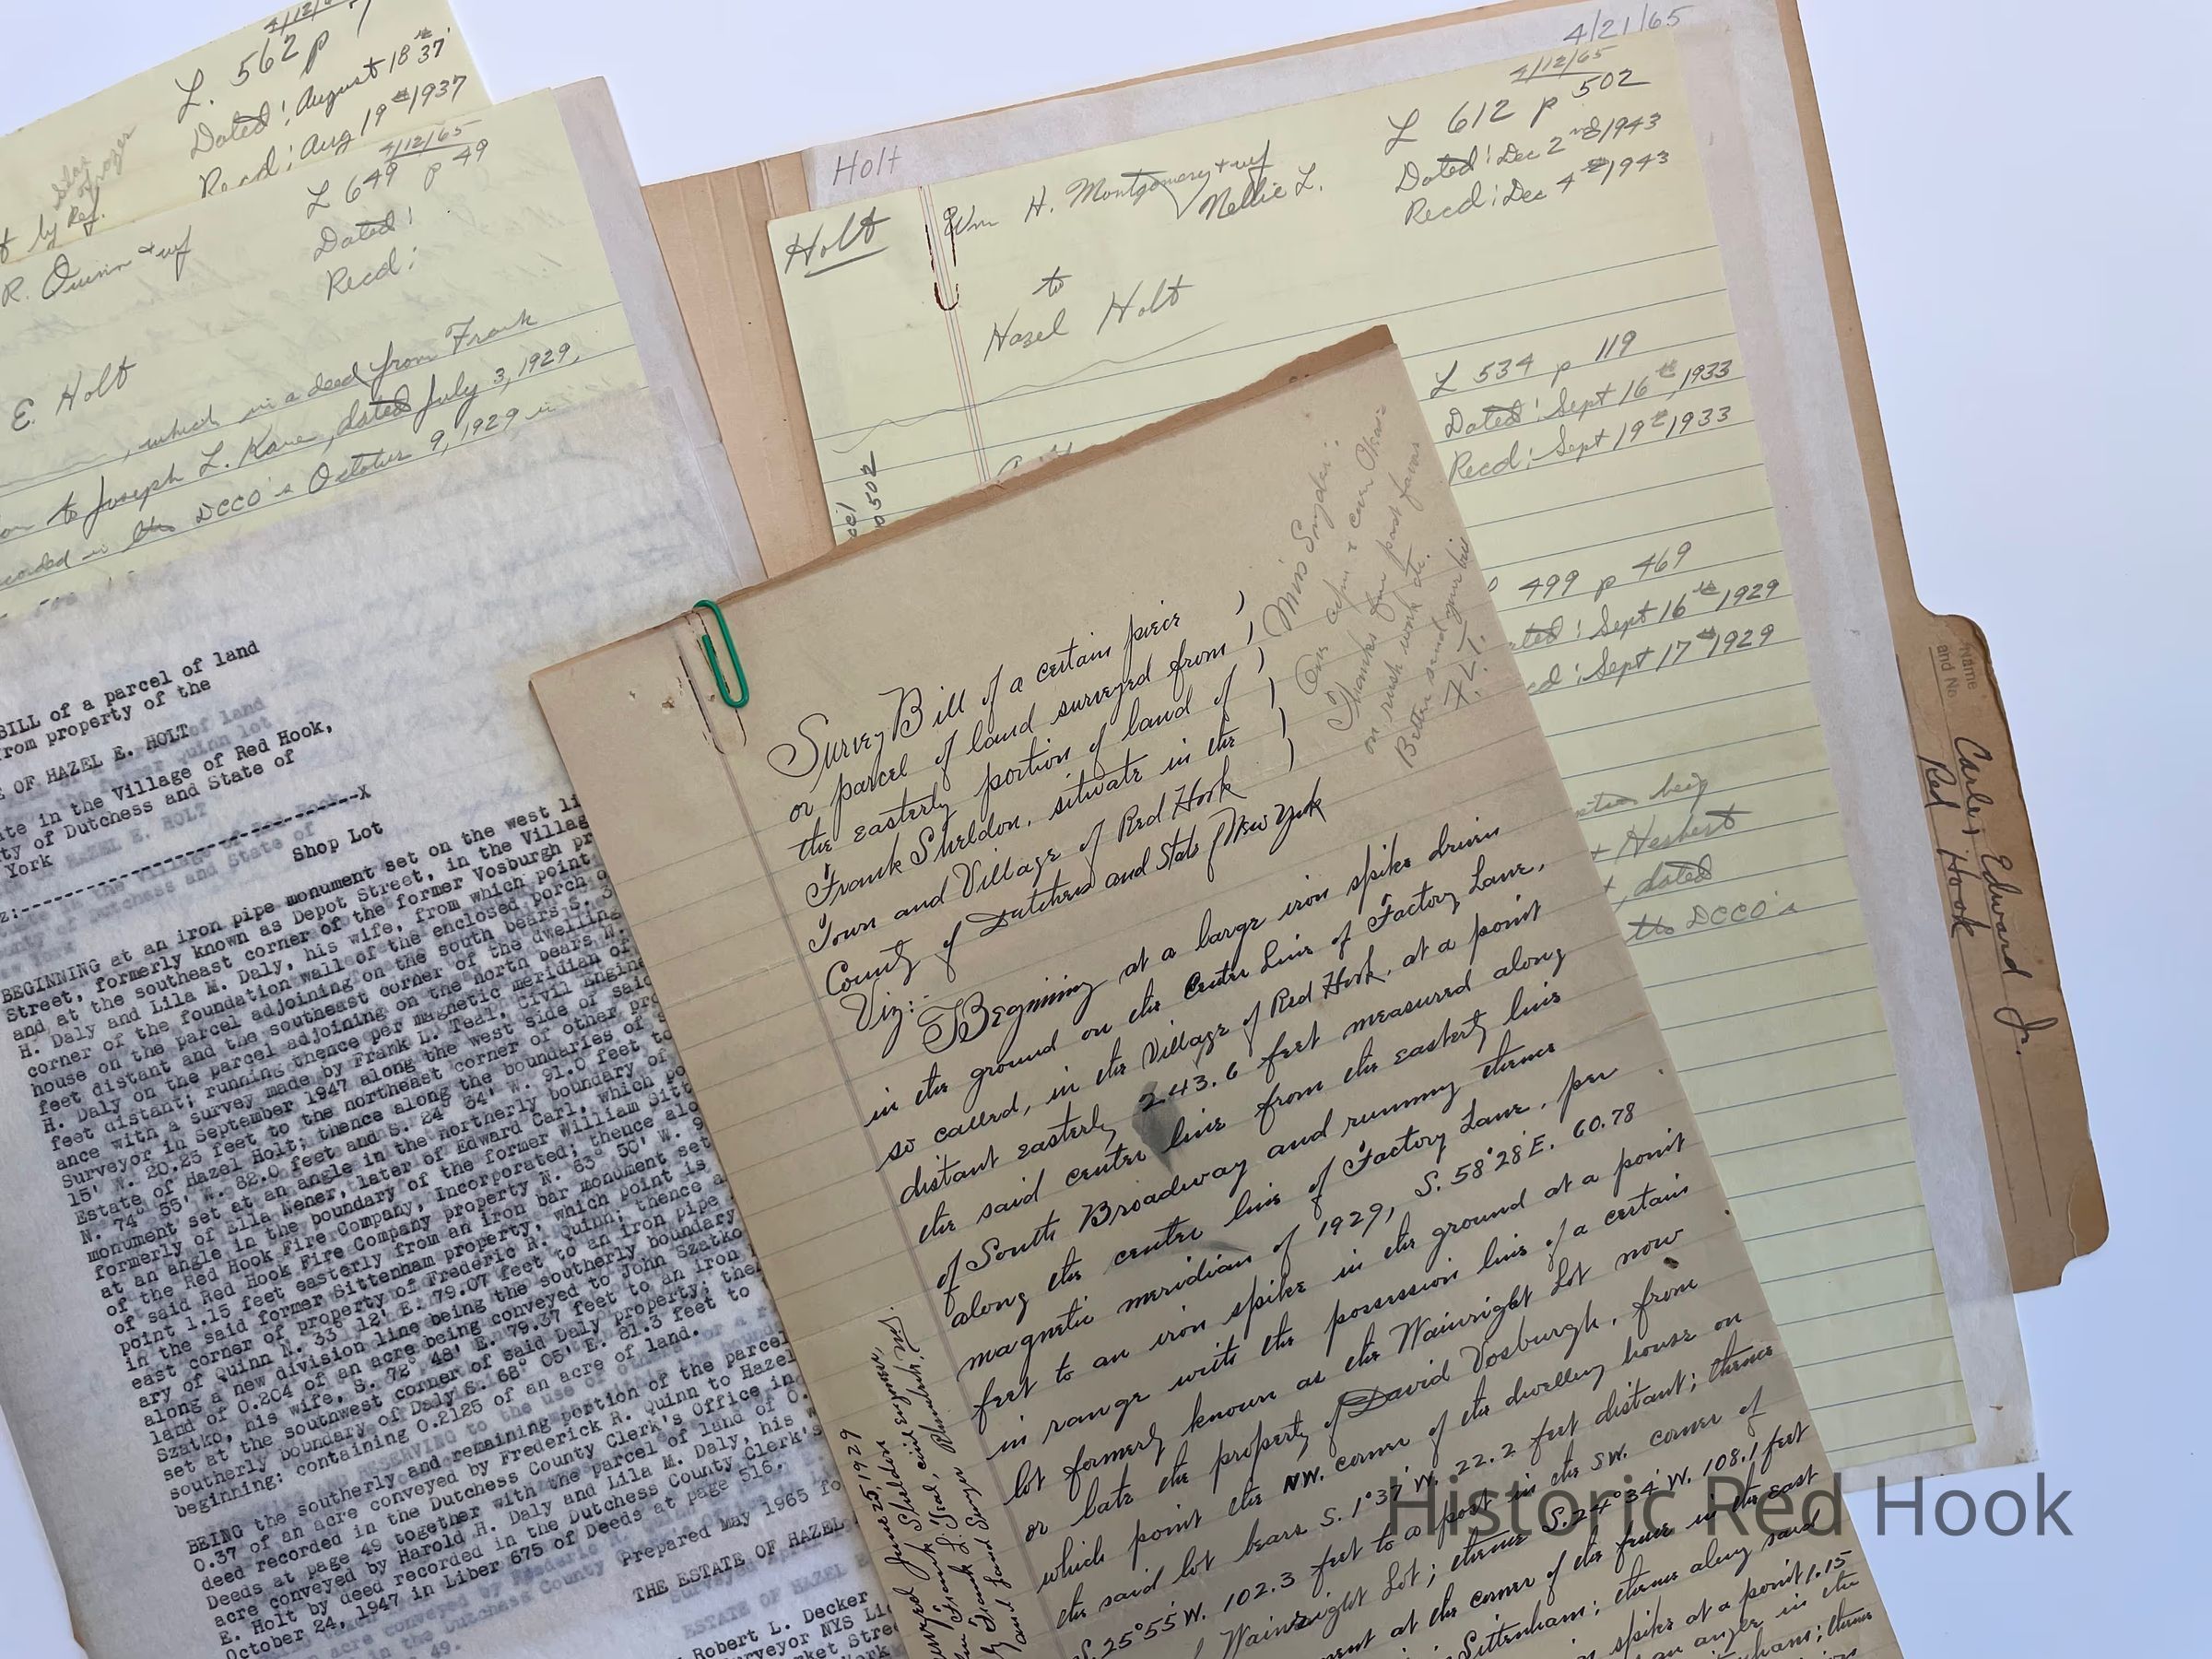 4/12/65
L. 562 p
Dated: August 18th 37
Recd: Aug 19th 1937
by Ref.
4/12/65
L 649 p 49
Dated:
Recd:
R. Quinn + wf
E. Holt
, which in a deed from Frank
to Joseph L. Kane, dated July 3, 1929,
in the DCCO's October 9, 1929 in
BILL of a parcel of land
from property of the
OF HAZEL E. HOLT
in the Village of Red Hook,
of Dutchess and State of
York
X
Shop Lot
BEGINNING at an iron pipe monument set on the west
Street, formerly known as Depot Street, in the
and at the southeast corner of the former Vosburgh
H. Daly and Lila M. Daly, his wife, from which point
corner of the foundation wall of the enclosed porch
house on the parcel adjoining on the south bears S.
feet distant and the southeast corner of the dwelling
H. Daly on the parcel adjoining on the north bears N.
feet distant; running thence per magnetic meridian of
ance with a survey made by Frank L. Teal, Civil
Surveyor in September 1947 along the west side of said
15' W. 20.25 feet to the northeast corner of other
Estate of Hazel Holt; thence along the boundaries of
N. 74° 55' W. 82.0 feet and S. 24° 34' W. 91.0 feet to
monument set at an angle in the northerly boundary of
formerly of Ella Near, later of Edward Carl, which
at an angle in the boundary of the former William
of the Red Hook Fire Company, Incorporated; thence
of said Red Hook Fire Company property N. 63° 50' W.
point 1.15 feet easterly from an iron bar monument set
in the said former Sittenham property, which point is
east corner of property of Frederic R. Quinn; thence
ary of Quinn N. 33° 12' E. 79.07 feet to an iron pipe
along a new division line being the southerly boundary
land of 0.204 of an acre being conveyed to John Szatko
Szatko, his wife, S. 72° 48' E. 79.37 feet to an iron
set at the southwest corner of said Daly property;
southerly boundary of Daly S. 68° 05' E. 81.3 feet to
beginning: containing 0.2125 of an acre of land.
BEING the southerly and remaining portion of the parcel
0.37 of an acre conveyed by Frederick R. Quinn to Hazel
deed recorded in the Dutchess County Clerk's Office in
Deeds at page 49 together with the parcel of land of
acre conveyed by Harold H. Daly and Lila M. Daly, his
E. Holt by deed recorded in the Dutchess County Clerk's
October 24, 1947 in Liber 675 of Deeds at page 516.
Prepared May 1965
THE ESTATE OF HAZEL
Robert L. Decker
4/21/65
Holt
4/12/65
L 612 p 502
Dated: Dec 2nd 1943
Recd: Dec 4th 1943
Holt
Wm H. Montgomery + wf
Nellie L.
to
Hazel Holt
L 534 p 119
Dated: Sept 16th, 1933
Recd: Sept 19th 1933
499 p 469
Sept 16th 1929
Sept 17th 1929
being
+ Herbert
, dated
the DCCO's
Miss Snyder:
Thanks for past favors
on rush work etc.
Better send your bill
F.L.T.
Survey Bill of a certain piece
or parcel of land surveyed from
the easterly portion of land of
Frank Sheldon, situate in the
Town and Village of Red Hook
County of Dutchess and State of New York
Viz:- Beginning at a large iron spike driven
in the ground on the Centre Line of Factory Lane,
so called, in the Village of Red Hook, at a point
distant easterly 243.6 feet measured along
the said center line from the easterly line
of South Broadway and running thence
along the center line of Factory Lane, per
magnetic meridian of 1929, S. 58° 28' E. 60.78
feet to an iron spike in the ground at a point
in range with the possession line of a certain
lot formerly known as the Wainright Lot now
or late the property of David Vosburgh, from
which point the NW. corner of the dwelling house on
the said lot bears S. 1° 37' W. 22.2 feet distant; thence
S. 25° 55' W. 102.3 feet to a post in the SW. corner of
Wainright Lot; thence S. 24° 34' W. 108.1 feet
at the corner of the fence in the east
Sittenham; thence along said
spike at a point 1.15
an angle in the
thence
June 25, 1929
Frank Sheldon
Frank L. Teal, civil engineer,
and Land Surveyor Rhinebeck, N.Y.
Name
and No.
Carle, Edward Jr.
Red Hook
Historic Red Hook